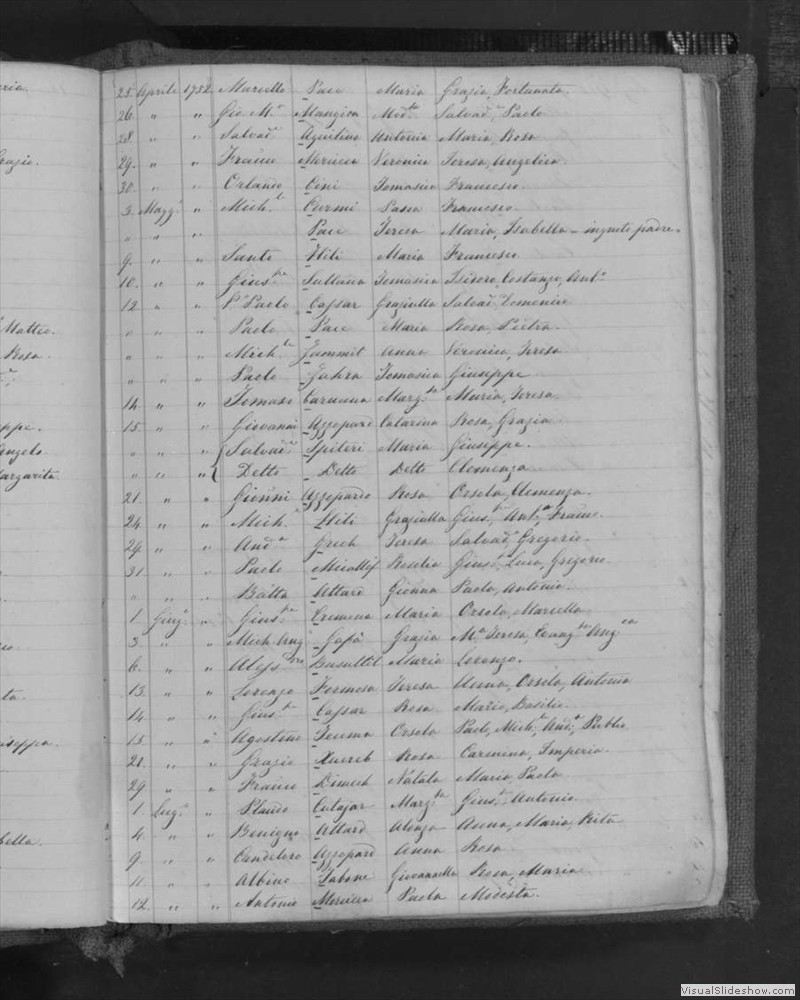 eria.
Grazio.
Matteo.
Rosa.
eppe.
Angelo.
Margarita.
ta.
useppa.
bella.
25. Aprile 1752 Marcello Pace Maria Grazia, Fortunata.
26. " " Gio M.ª Mangion Mod.ta Salvad.e, Paolo
28. " " Salvad.e Aquilina Antonia Maria, Rosa
29. " " Franco Veronica Teresa, Angelica.
30. " " Orlando Cini Tomasica Francesco.
3. Magg. " Mich.l Curmi Pasca Francesco.
" " " Pace Teresa Maria, Isabella - ingnoto padre.
9. " " Santo Hili Maria Francesco
10. " " Gius.pe Sultana Tomasica Isidoro, Costanzo, Ant.o
12. " " P.o Paolo Cassar Graziulla Salvad.e Domenico
" " " Paolo Pace Maria Rosa, Pietra.
" " " Mich.l Zammit Anna Veronica, Teresa
" " " Paolo Zahra Tomasica Giuseppe
14. " " Tomaso Caruana Marg.ta Maria, Teresa.
15. " " Giovanni Azzopard Catarina Rosa, Grazia
" " " Salvad.e Spiteri Maria Giuseppe.
" " " Detto Detto Detto Clemenza
21. " " Gionni Azzopardo Rosa Orsola, Clemenza.
24. " " Mich. Hili Graziulla Gius.e, Ant.o, Franc.
29. " " And.a Grech Teresa Salvad.e, Gregorio.
31. " " Paolo Micallef Rosolia Gius.e, Luca, Gregorio.
" " " Batta Attard Gionna Paolo, Antonio.
1. Giug. " Gius.pe Cremona Maria Orsola, Marcella
3. " " Mich. Ang. Gafà Grazia M.a Teresa, Ang.ca
6. " " Aless.dro Busuttil Maria Lorenzo.
13. " " Lorenzo Formosa Teresa Anna, Orsola, Antonia
14. " " Gius.e Cassar Rosa Mario, Basilio.
15. " " Agostino Orsola Paolo, Mich.l, And.a, Publio
28. " " Grazio Xuereb Rosa Carmena, Imperia.
29. " " Franco Dimech Natala Maria, Paola
1. Lug. " Placido Cutajar Marg.ta Gius.e, Antonio.
4. " " Benigno Attard Aloisa Anna, Maria, Rita
9. " " Candeloro Azzopard Anna Rosa
11. " " Albino Tabone Giovannella Rosa, Maria
12. " " Antonio Paola Modesta.
VisualSlideshow.com